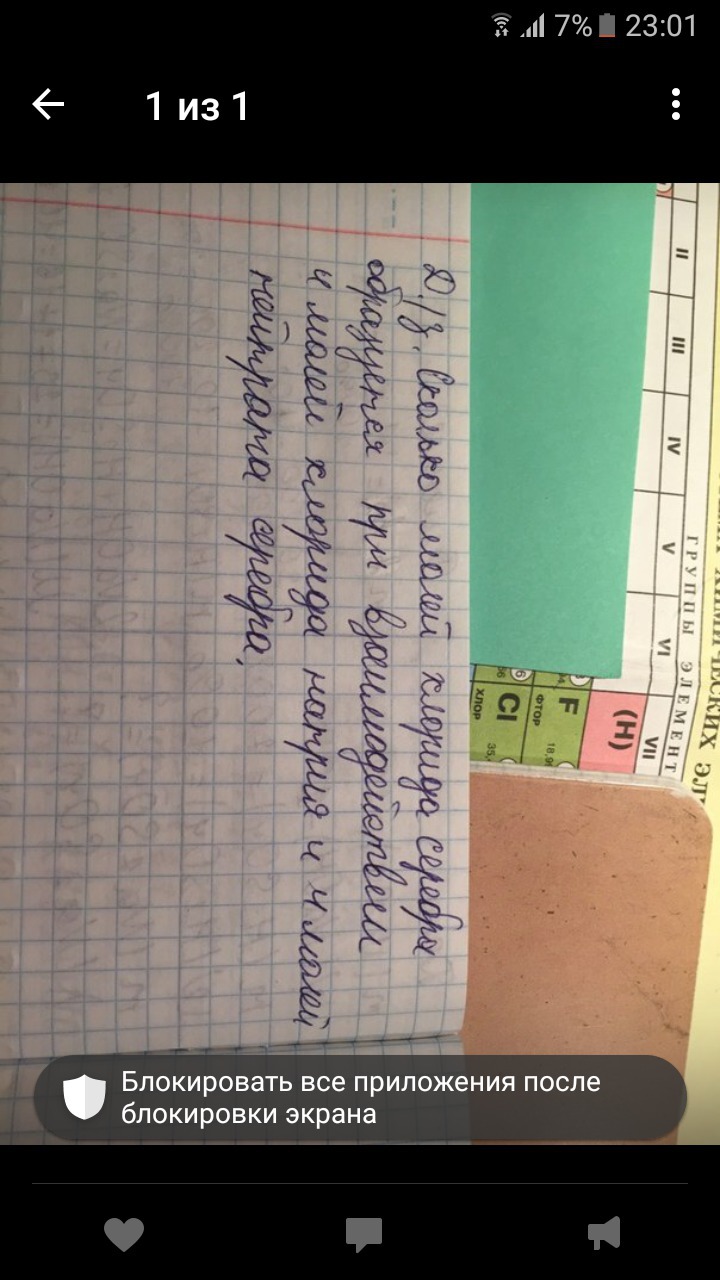 7% 23:01
1 из 1
II
III
IV
V
VI
VII
ГРУППЫ ЭЛЕМЕНТ
(H)
F
ФТОР
18,99
Cl
ХЛОР
35,
Д/З. Сколько молей хлорида серебра
образуется при взаимодействии
4 молей хлорида натрия и 4 молей
нейтрата серебра.
Блокировать все приложения после
блокировки экрана